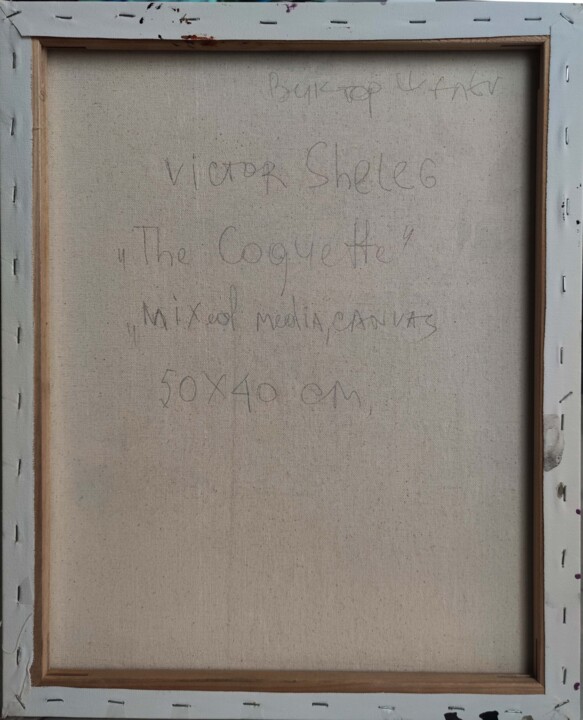 Виктор
Victor Sheleg
„The Coquette“
„Mixed media, CANVAS
50X40 cm,